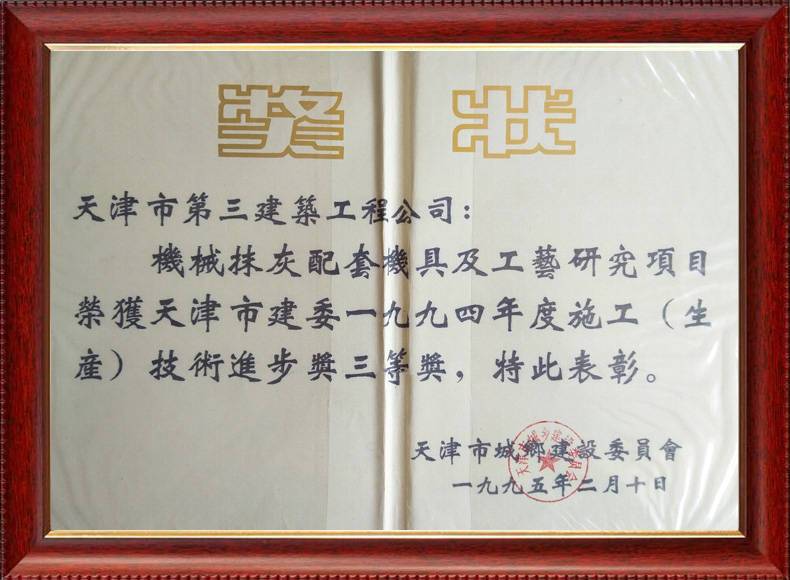 奖状
天津市第三建築工程公司：
機械抹灰配套機具及工藝研究項目
榮獲天津市建委一九九四年度施工（生
産）技術進步獎三等獎，特此表彰。
天津市城鄉建設委員會
一九九五年二月十日